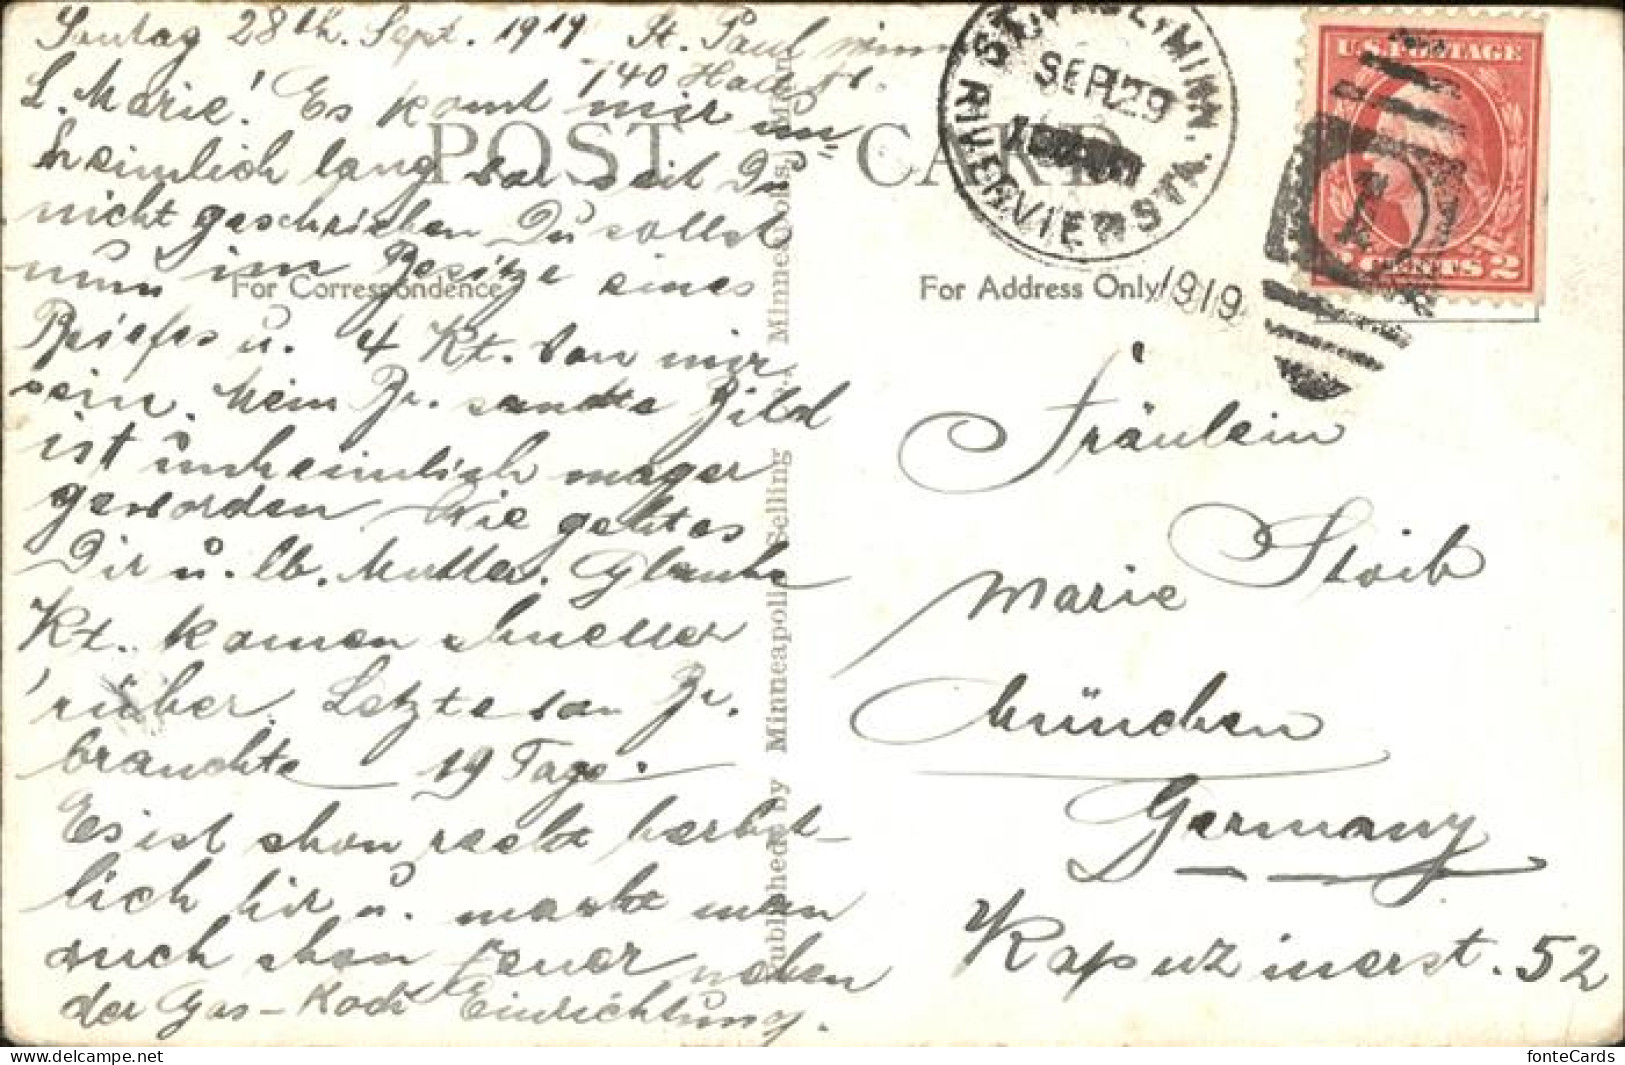 Sontag 28th. Sept. 1919 St. Paul Minn
740 Hall St.
L. Marie! Es komt mir un
heimlich lang vor seit Du
nicht geschrieben Du sollst
nun im Besitze eines
Briefes u. 4 Kt. von mir
sein. Mein Br. sandte Bild
ist unheimlich mager
geworden. Wie geht es
Dir u. lb. Mutter. Glaube
Kt. komen schneller
rüber. Letzte von Br.
brauchte 19 Tage.
Es ist schon recht herbst-
lich hir u. macht man
auch schon feuer neben
der Gas-Koch Einrichtung.
POST CARD
For Correspondence
For Address Only
Published by Minneapolis Selling Co., Minneapolis, Minn.
ST. PAUL, MINN.
RIVERVIEW STA.
SEP 29
1919
U.S. POSTAGE
2 CENTS 2
1
Fräulein
Marie Stoib
München
Germany
Kapuzinerst. 52
fonteCards